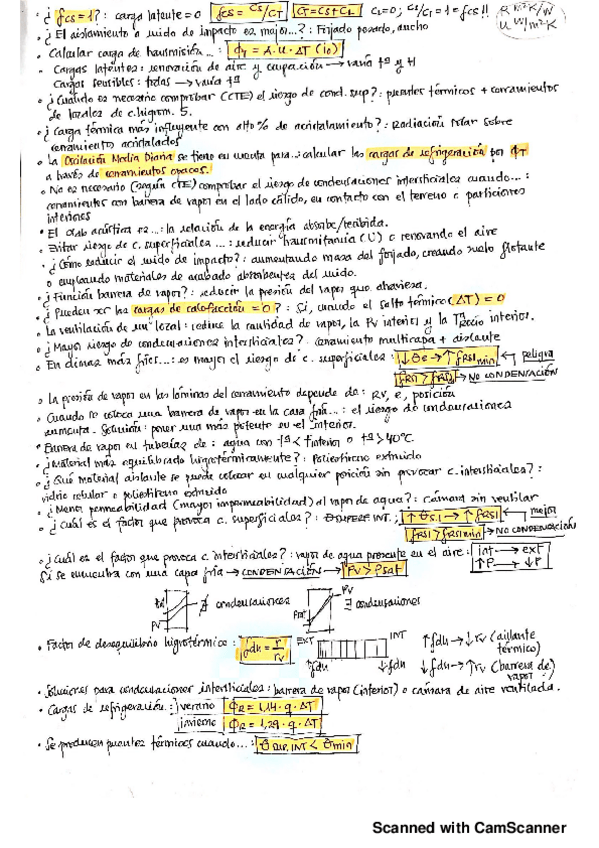 · ¿fcs=1?: carga latente=0 fcs = Cs/CT CT=CS+CL CL=0; Cs/CT=1=fcs!! R m²K/W
· ¿El aislamiento a ruido de impacto es mejor...?: Forjado pesado, ancho U W/m²K
· Calcular carga de transmisión...: ΦT = A·U·ΔT (io)
· Cargas latentes: renovación de aire y ocupación → varía tª y H
Cargas sensibles: todas → varía tª
· ¿Cuándo es necesario comprobar (CTE) el riesgo de cond. sup?: puentes térmicos + cerramientos
de locales de c. higrom. 5.
· ¿Carga térmica más influyente con alto % de acristalamiento?: Radiación solar sobre
cerramientos acristalados
· La Oscilación Media Diaria se tiene en cuenta para...: calcular las cargas de refrigeración por ΦT
a través de cerramientos opacos.
· No es necesario (según CTE) comprobar el riesgo de condensaciones intersticiales cuando...:
cerramientos con barrera de vapor en el lado cálido, en contacto con el terreno o particiones
interiores
· El αsab acústica es...: la relación de la energía absorbe/recibida.
· Evitar riesgo de c. superficiales...: reducir transmitancia (U) o renovando el aire
· ¿Cómo reducir el ruido de impacto?: aumentando masa del forjado, creando suelo flotante
o empleando materiales de acabado absorbentes del ruido.
· ¿Función barrera de vapor?: reducir la presión del vapor que atraviesa.
· ¿Pueden ser las cargas de calefacción=0?: Sí, cuando el salto térmico (ΔT)=0
· La ventilación de un local: reduce la cantidad de vapor, la Pv interior y la Tª rocío interior.
· ¿Mayor riesgo de condensaciones intersticiales? cerramiento multicapa + aislante
· En climas más fríos...: es mayor el riesgo de c. superficiales: ↓θe → ↑fRSI min ← peligro
→ NO CONDENSACIÓN
· La presión de vapor en las láminas del cerramiento depende de: RV, e, posición
· Cuando se coloca una barrera de vapor en la cara fría...: el riesgo de condensaciones
aumenta. Solución: poner una más potente en el interior.
· Barrera de vapor en tuberías de: agua con tª < tinterior o tª > 40°C.
· ¿Material más equilibrado higrotérmicamente?: Poliestireno extruido
· ¿Qué material aislante se puede colocar en cualquier posición sin provocar c. intersticiales?:
vidrio celular o poliestireno extruido
· ¿Menor permeabilidad (mayor impermeabilidad) al vapor de agua?: Cámara sin ventilar
· ¿Cuál es el factor que provoca c. superficiales?: θ SUPERF INT.; ↑θsi → ↑fRSI ← mejor
fRSI > fRSImin → NO CONDENSACIÓN
· ¿Cuál es el factor que provoca c. intersticiales?: vapor de agua presente en el aire: int → ext
Si se encuentra con una capa fría → CONDENSACIÓN → Pv > Psat ↑P → ↓P
Psat PV ∄ condensaciones Psat PV ∃ condensaciones
· Factor de desequilibrio higrotérmico: fdh = r/rv EXT INT ↑fdh ↓fdh ↑fdh → ↓rv (aislante térmico)
↓fdh → ↑rv (barrera de vapor)
· Soluciones para condensaciones intersticiales: barrera de vapor (interior) o cámara de aire ventilada.
· Cargas de refrigeración: verano ΦR = 1,14·q·ΔT
invierno ΦR = 1,29·q·ΔT
· Se producen puentes térmicos cuando...: θ SUP. INT < θ min
Scanned with CamScanner